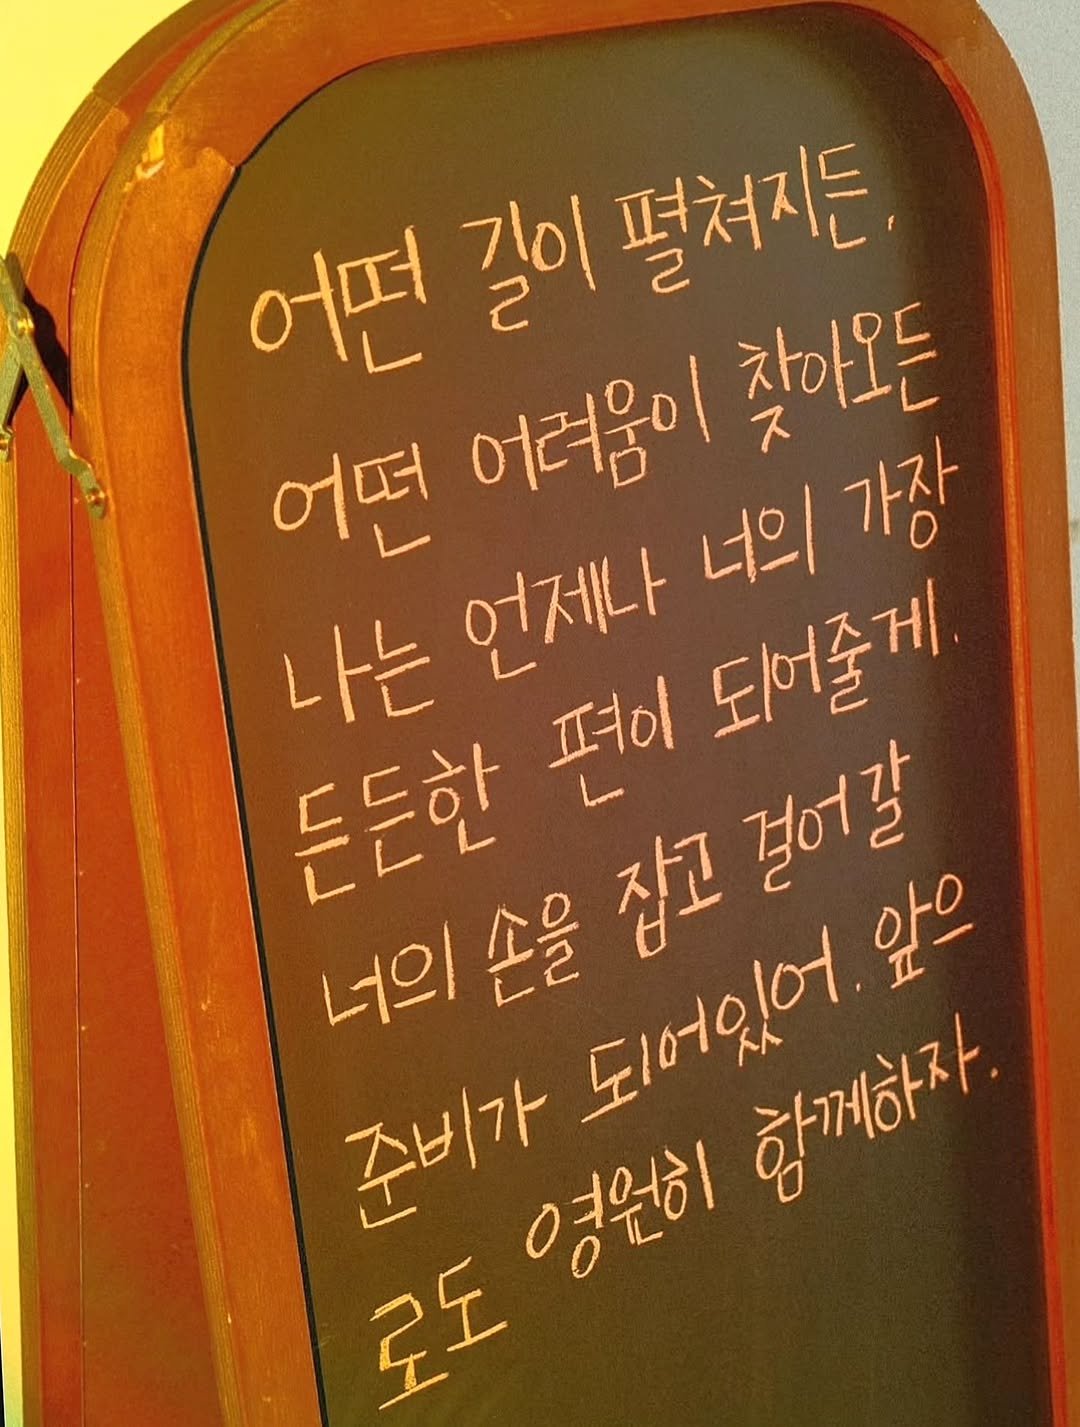 어떤 길이 펼쳐지든,
어떤 어려움이 찾아오든
나는 언제나 너의 가장
든든한 편이 되어줄게.
너의 손을 잡고 걸어갈
준비가 되어있어. 앞으
로도 영원히 함께하자.